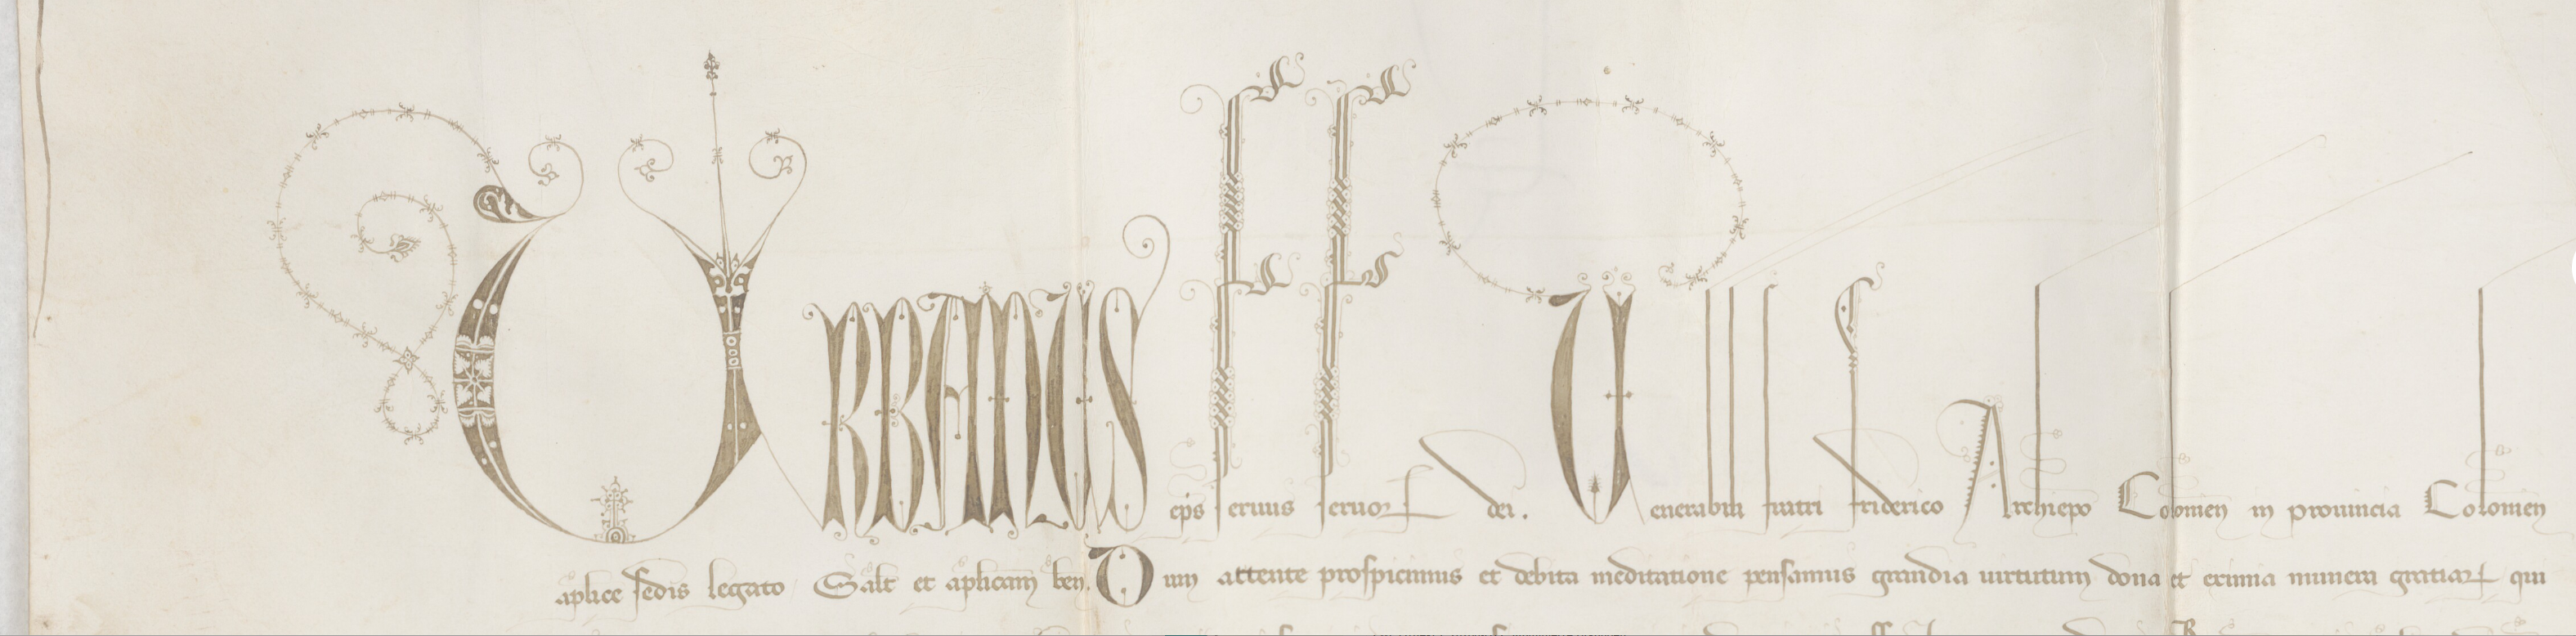 URBANUS eps seruus seruor dei. Uenerabili fratri Friderico Archiepo Colonien in prouincia Colonien
aplice sedis legato Salt et aplicam ben. Dum attente prospicimus et debita meditatione pensamus grandia uirtutum dona et eximia munera gratiar qui